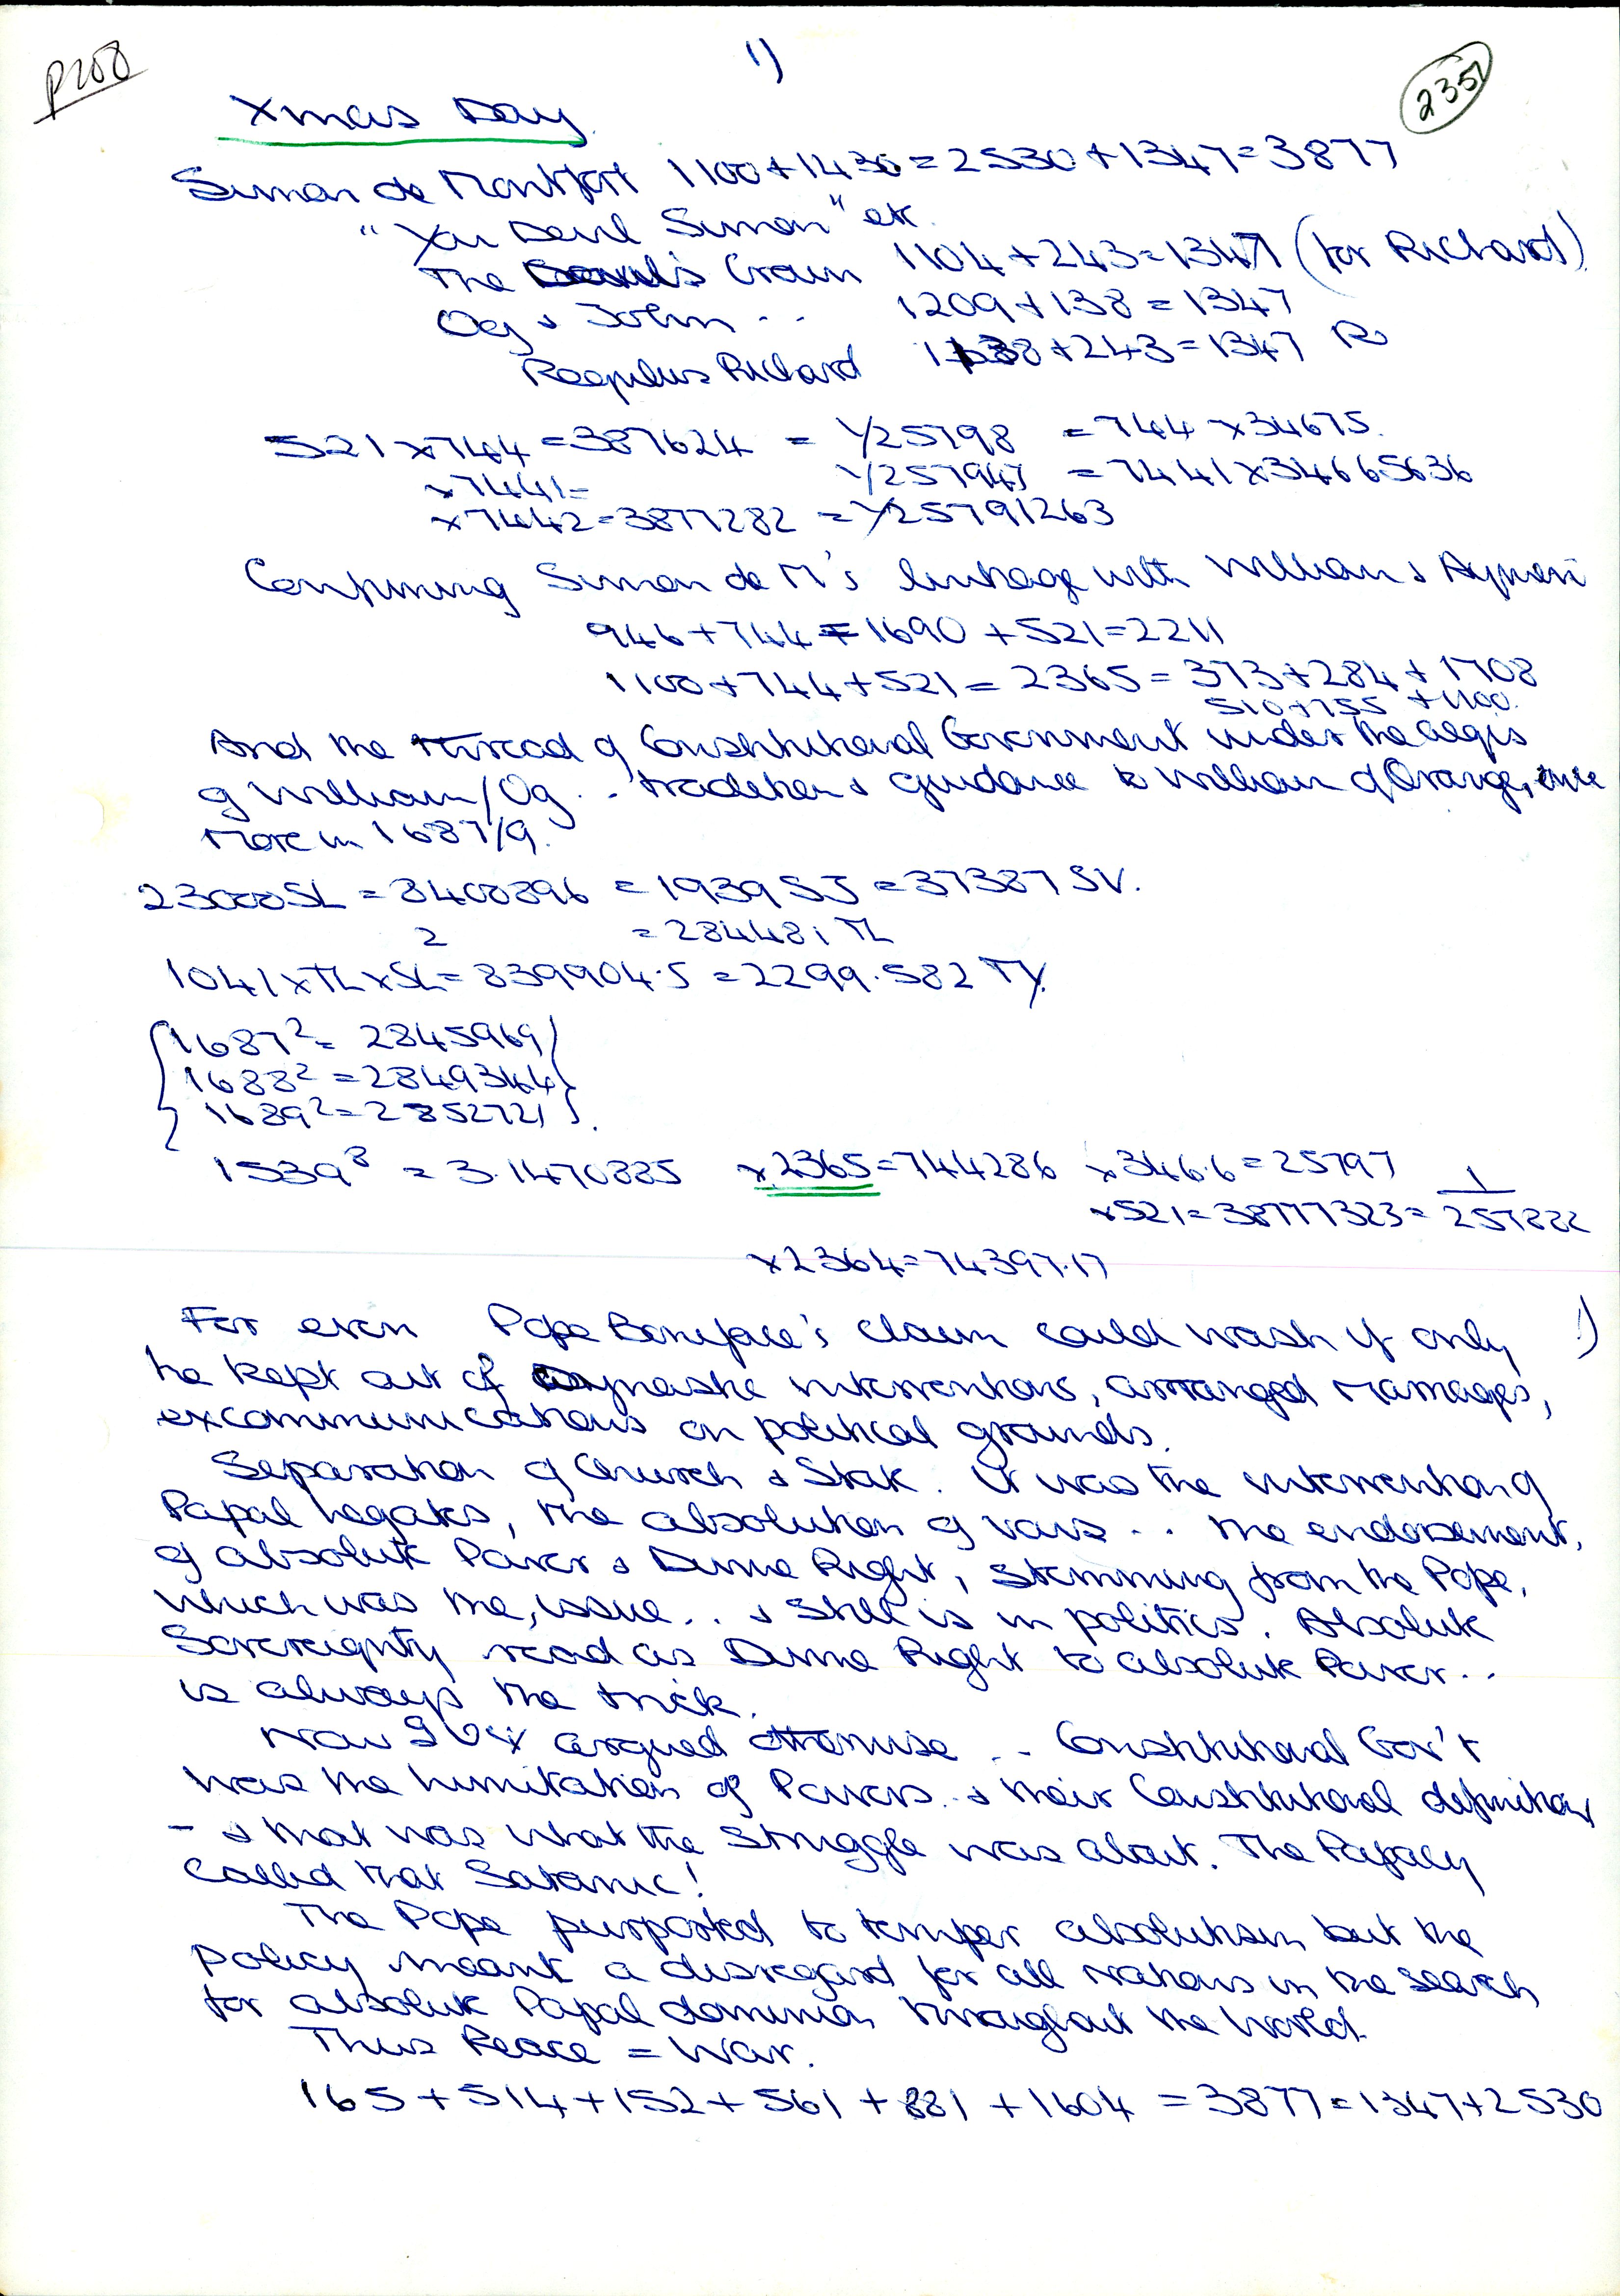 1)
P208
235
Xmas Day.
Simon de Montfort 1100+1430=2530+1347=3877
"You Devil Simon" etc.
The Devil's Crown 1104+243=1347 (for Richard)
Og & John .. 1209+138=1347
Regulus Richard +243=1347 R
521x744=387624 = 1/25798 =744x34675.
x7441= 1/257947 =7441x34665636
x7442=3877282 =1/25791263
Confirming Simon de M's linkage with William & Aymeri
946+744=1690+521=2211
1100+744+521=2365=373+284+1708
510+755+1100.
And the thread of Constitutional Government under the aegis
of William/Og .. tradition & guidance to William of Orange, once
More in 1687/9.
23000SL = 8400896 = 1939SJ = 37387SV.
2 = 28448; TL
1041xTLxSL=839904.5 = 2299.582 TY.
1687²= 2845969
1688² = 2849344
1689²=2852721
1539⁸ = 3.1470885 x2365=744286 x346.6=25797
x521=38777323= 1/257882
x2364=74397.17
For even Pope Boniface's claim could wash if only 1)
he kept out of Dynastic interventions, arranged marriages,
excommunications on political grounds.
Separation of Church & State. It was the intervention of
Papal Legates, the absolution of vows .. the endorsement,
of absolute Power & Divine Right, stemming from the Pope,
which was the, issue .. & still is in politics. Absolute
Sovereignty read as Divine Right to absolute Power ..
is always the trick.
Now argued otherwise .. Constitutional Gov't
was the limitation of Powers .. & their Constitutional definition
- & that was what the struggle was about. The Papacy
called that Satanic!
The Pope purported to temper absolutism but the
policy meant a disregard for all nations in the search
for absolute Papal dominion throughout the World.
Thus Peace = War.
165+514+152+561+881+1604 = 3877=1347+2530